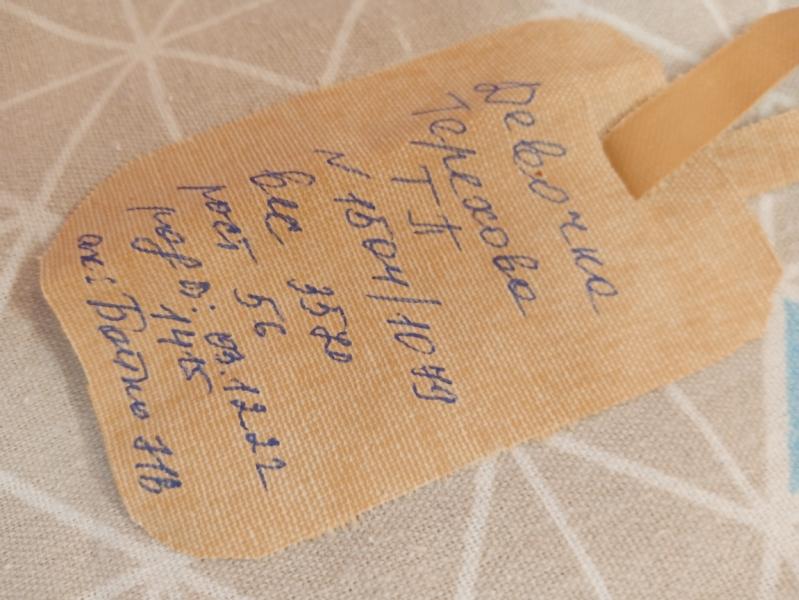 Девочка
Терехова
Т П
N 1504/1049
вес 3520
рост 56
род 03.12.22
14 15
ак: Батно